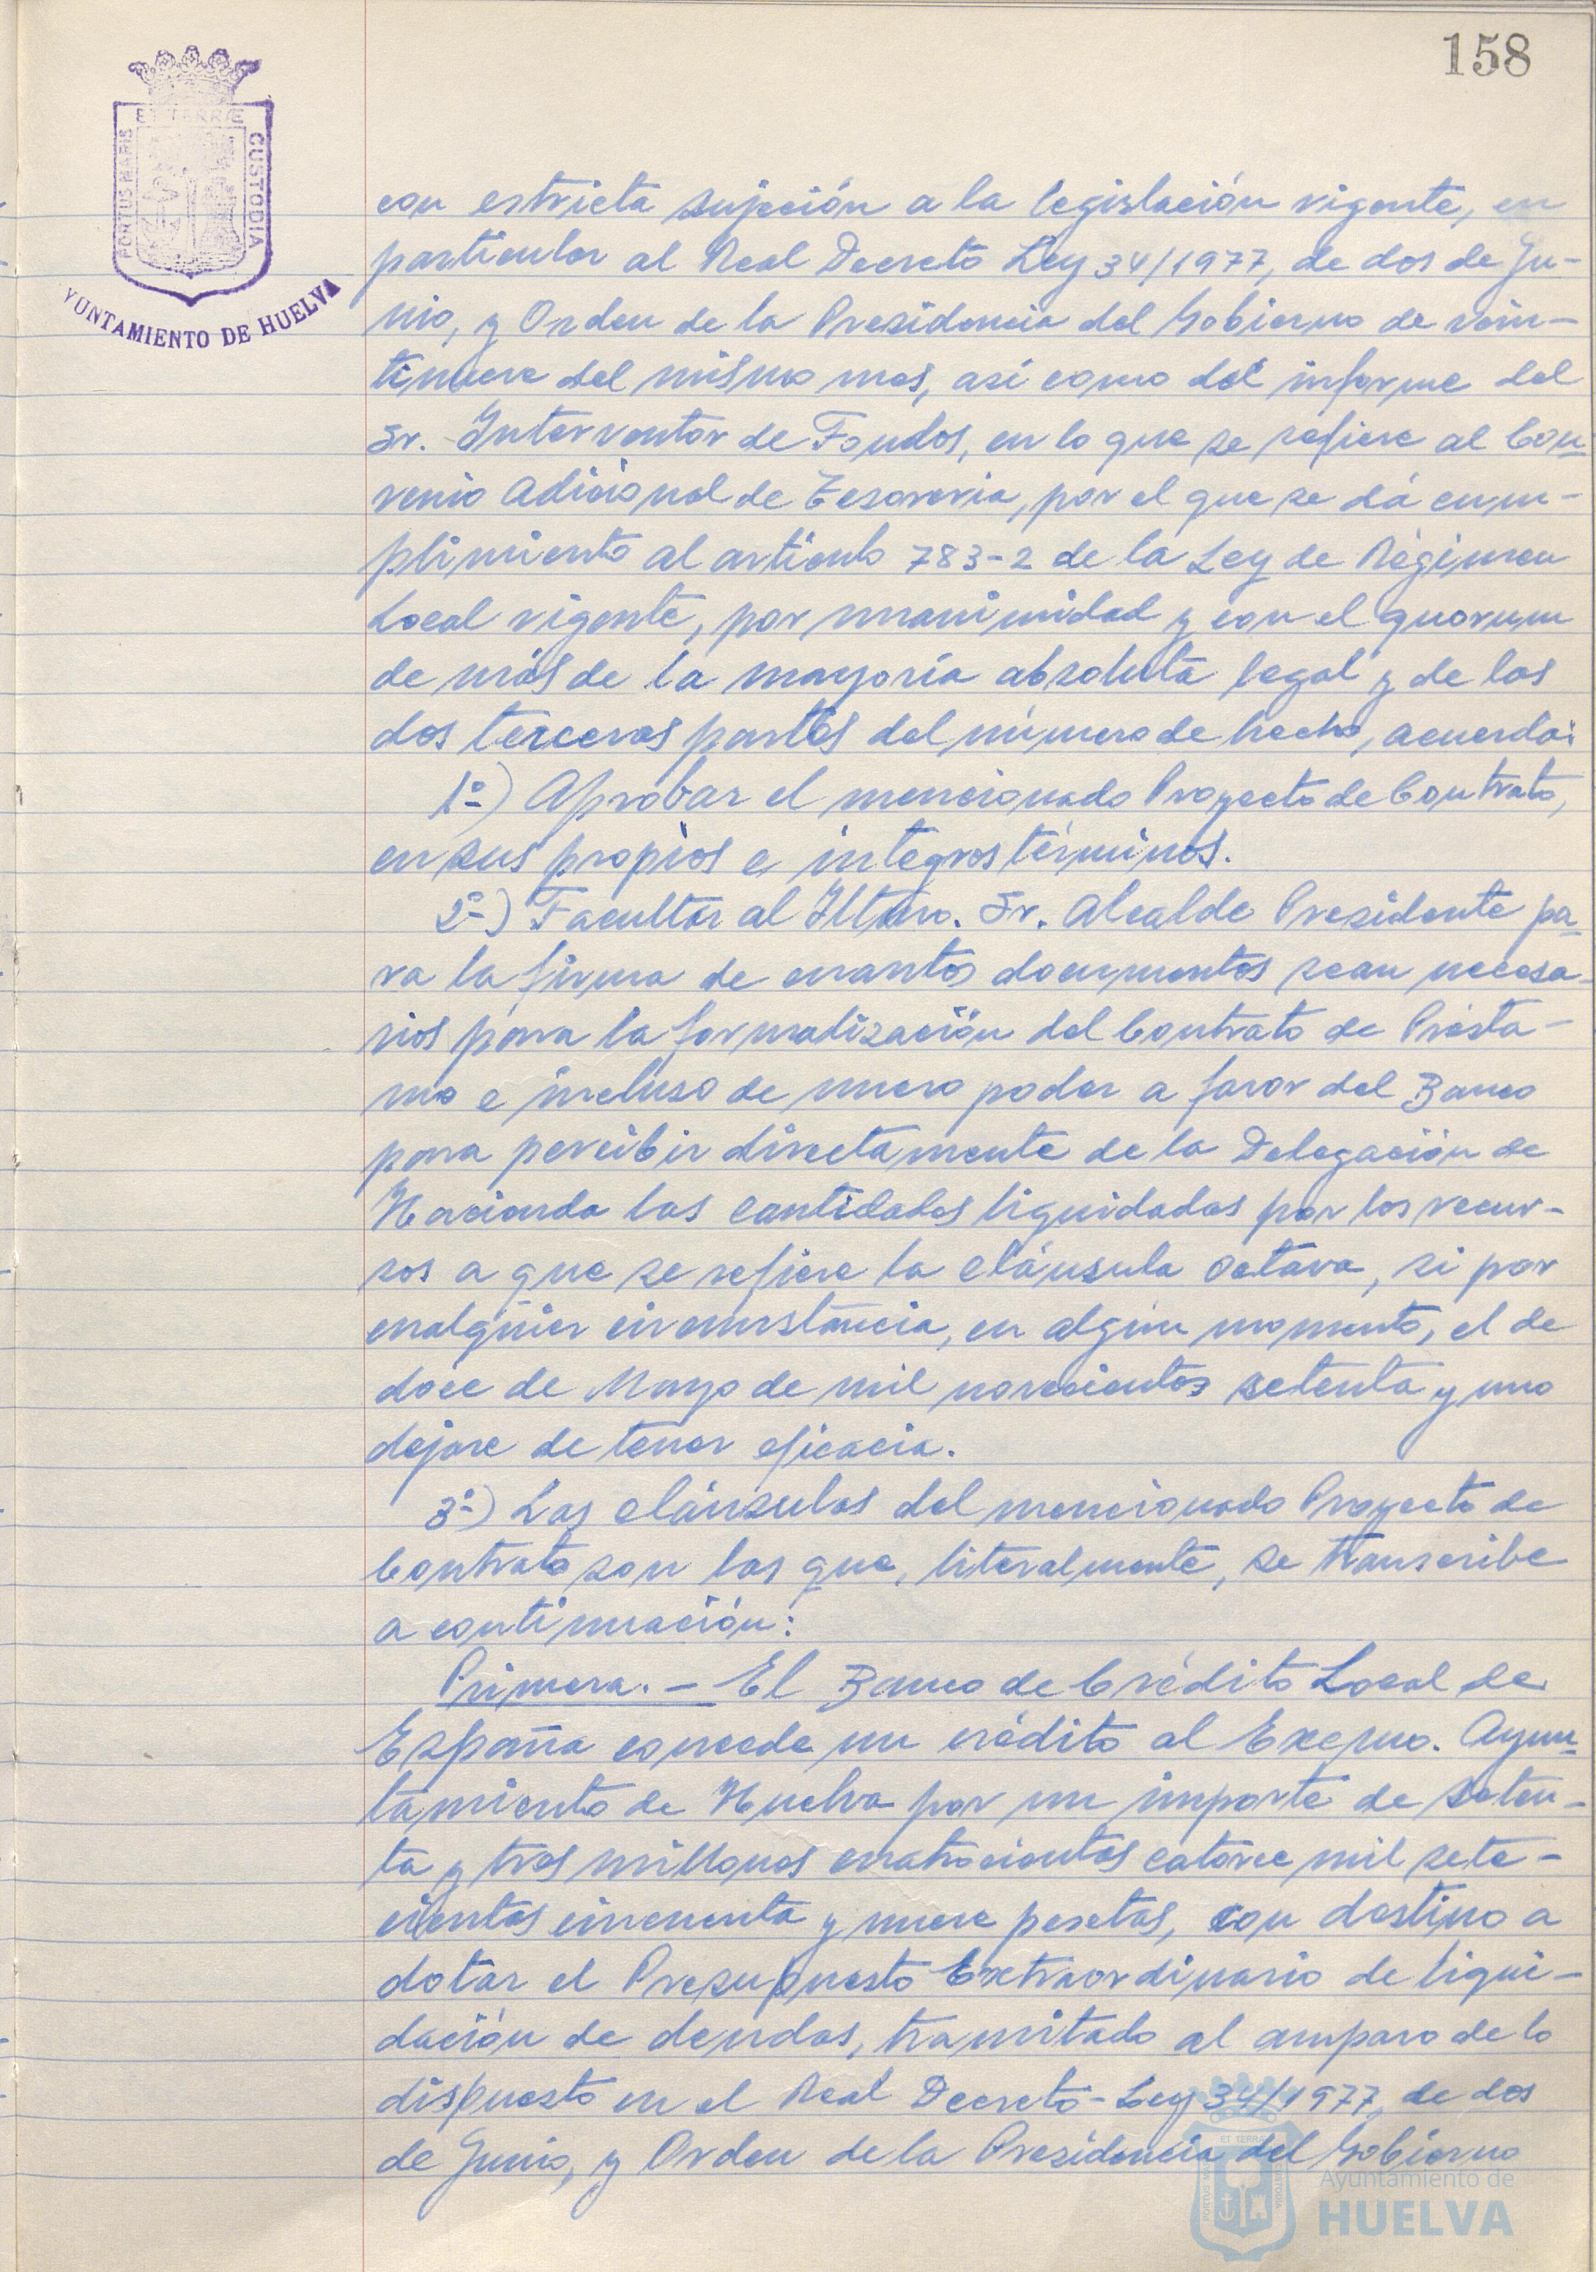 158
ET TERRÆ
PORTUS MARIS
CUSTODIA
YUNTAMIENTO DE HUELVA
con estricta sujeción a la legislación vigente, en
particular al Real Decreto Ley 34/1977, de dos de Ju-
nio, y Orden de la Presidencia del Gobierno de vein-
tinueve del mismo mes, así como del informe del
Sr. Interventor de Fondos, en lo que se refiere al Con-
venio Adicional de Tesorería, por el que se dá cum-
plimiento al artículo 783-2 de la Ley de Régimen
Local vigente, por unanimidad y con el quorum
de más de la mayoría absoluta legal y de las
dos terceras partes del número de hecho, acuerda:
1º-) Aprobar el mencionado Proyecto de Contrato,
en sus propios e integros términos.
2º-) Facultar al Iltmo. Sr. Alcalde Presidente pa-
ra la firma de cuantos documentos sean necesa-
rios para la formalización del Contrato de Présta-
mo e incluso de nuevo poder a favor del Banco
para percibir directamente de la Delegación de
Hacienda las cantidades liquidadas por los recur-
sos a que se refiere la cláusula octava, si por
cualquier circunstancia, en algún momento, el de
doce de Mayo de mil novecientos setenta y uno
dejare de tener eficacia.
3º-) Las cláusulas del mencionado Proyecto de
Contrato son las que, literalmente, se transcribe
a continuación:
Primera.- El Banco de Crédito Local de
España concede un crédito al Excmo. Ayun-
tamiento de Huelva por un importe de seten-
ta y tres millones cuatrocientas catorce mil sete-
cientas cincuenta y nueve pesetas, con destino a
dotar el Presupuesto Extraordinario de liqui-
dación de deudas, tramitado al amparo de lo
dispuesto en el Real Decreto-Ley 34/1977, de dos
de Junio, y Orden de la Presidencia del Gobierno
Ayuntamiento de
HUELVA